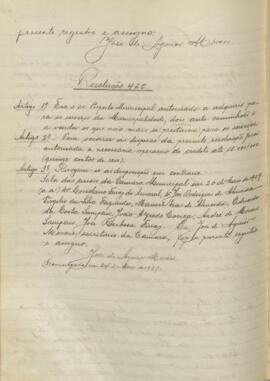 presente registro e assigno.
José de Aguiar Moraes
Resolução 420
Artigo 1º Fica o sr. Prefeito Municipal autorizado a adquirir para
o serviço da Municipalidade, dois auto caminhões e
a vender os que não mais se prestarem para os serviços
Artigo 2º Para occorrer as despesas da presente resolução fica
autorizada a necessaria operação de credito até 15:000$000
(quinze contos de reis).
Artigo 3º Revogam-se as disposições em contrario
Sala das sessões da Camara Municipal em 20 de Maio de 1927
(a.a.) José Rodrigues de Almeida
Virgilio da Silva Fagundes, Manoel de Almeida, Eduardo
da Costa Sampaio, João Alfredo, André de Moraes
Sampaio, José Barbosa Ferraz. Eu, José de Aguiar
Moraes, secretario da Camara, o presente registro
e assigno.
José de Aguiar Moraes
Promulgada em 24 de Maio de 1927.